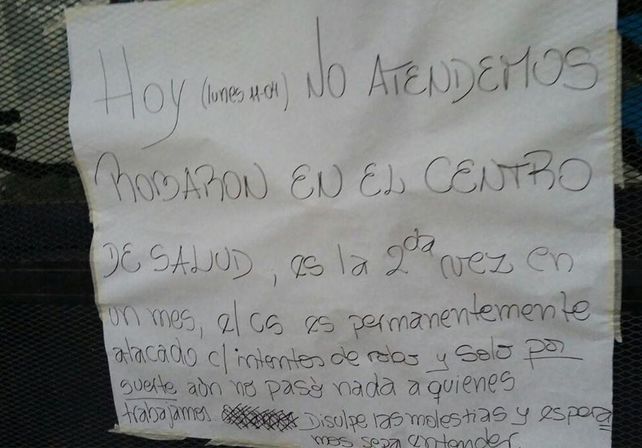 Hoy (lunes 11-04) NO ATENDEMOS
ROBARON EN EL CENTRO
DE SALUD, es la 2da vez en
un mes, el CS es permanentemente
atacado c/intentos de robo y solo por
suerte aún no pasó nada a quienes
trabajamos Disulpe las molestias y espera
mos sepa entender.